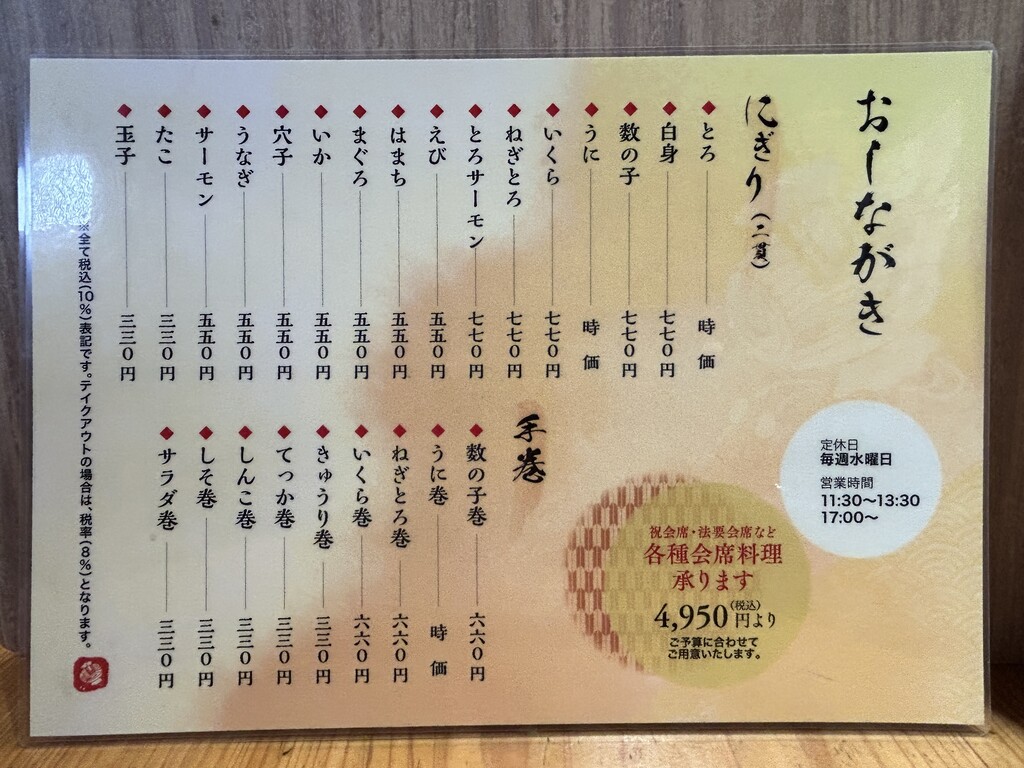 おしながき
にぎり(二貫)
◆とろ 時価
◆白身 七七〇円
◆数の子 七七〇円
◆うに 時価
◆いくら 七七〇円
◆ねぎとろ 七七〇円
◆とろサーモン 七七〇円
◆えび 五五〇円
◆はまち 五五〇円
◆まぐろ 五五〇円
◆いか 五五〇円
◆穴子 五五〇円
◆うなぎ 五五〇円
◆サーモン 五五〇円
◆たこ 三三〇円
◆玉子 三三〇円
手巻
◆数の子巻 六六〇円
◆うに巻 時価
◆ねぎとろ巻 六六〇円
◆いくら巻 六六〇円
◆きゅうり巻 三三〇円
◆てっか巻 三三〇円
◆しんこ巻 三三〇円
◆しそ巻 三三〇円
◆サラダ巻 三三〇円
※全て税込(10%)表記です。テイクアウトの場合は、税率(8%)となります。
定休日
毎週水曜日
営業時間
11:30〜13:30
17:00〜
祝会席・法要会席など
各種会席料理
承ります
4,950円(税込)より
ご予算に合わせて
ご用意いたします。